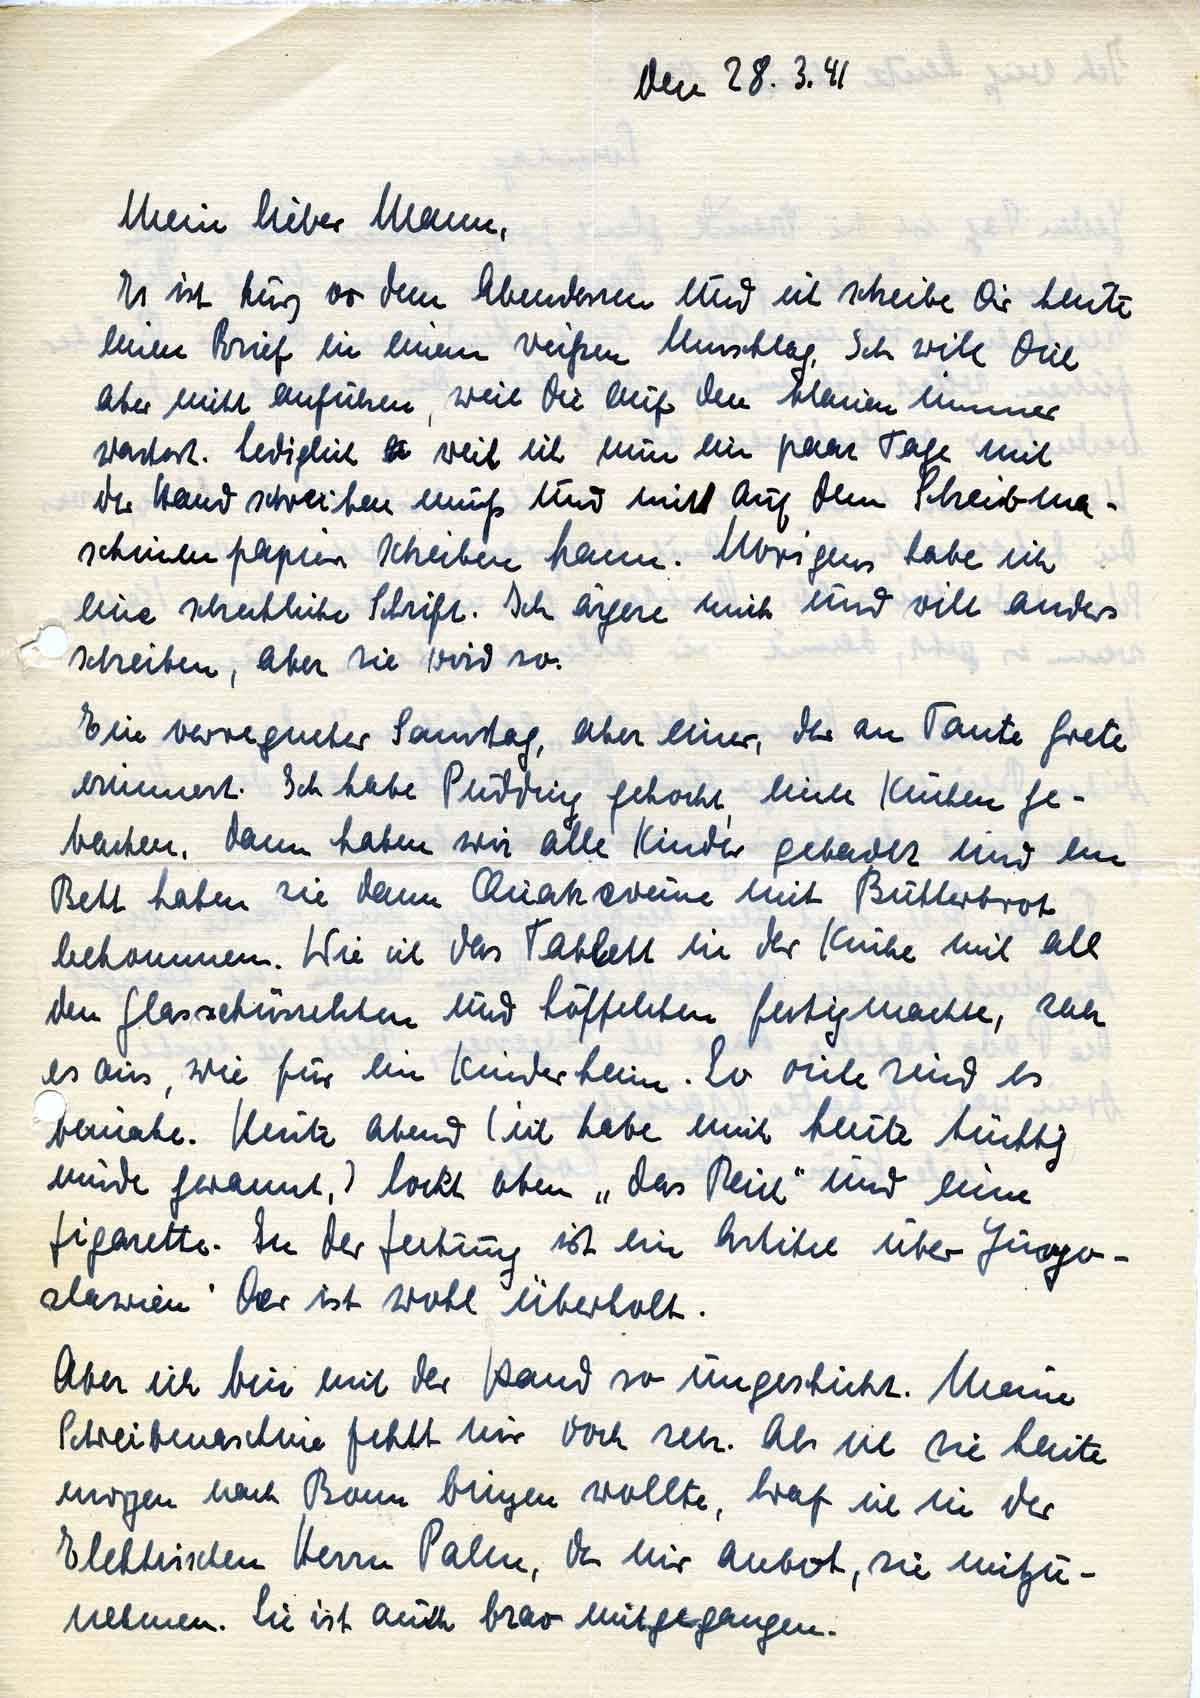 den 28. 3. 41
Mein lieber Mann,
Es ist kurz vor dem Abendessen und ich schreibe Dir heute
einen Brief in einem weißen Umschlag. Ich will Dich
aber nicht anführen, weil Du auf den blauen immer
wartest. Lediglich weil ich nun ein paar Tage mit
der Hand schreiben muß und nicht auf dem Schreibma-
schinenpapier schreiben kann. Übrigens habe ich
eine schreckliche Schrift. Ich ärgere mich und will anders
schreiben, aber sie wird so.
Ein verregneter Samstag, aber einer, der an Tante Grete
erinnert. Ich habe Pudding gekocht, einen Kuchen ge-
backen, dann haben wir alle Kinder gebadet und im
Bett haben sie dann Quarkcreme mit Butterbrot
bekommen. Wie ich das Tablett in der Küche mit all
den Glasschüsselchen und Löffelchen fertigmachte, sah
es aus, wie für ein Kinderheim. So viele sind es
beinahe. Heute Abend (ich habe mich heute tüchtig
müde gerannt,) lockt oben „das Reich" und eine
Zigarette. In der Zeitung ist ein Artikel über Jugo-
slawien. Der ist wohl überholt.
Aber ich bin mit der Hand so ungeschickt. Meine
Schreibmaschine fehlt mir doch sehr. Als ich sie heute
morgen nach Bonn bringen wollte, traf ich in der
Elektrischen Herrn Palm, der mir anbot, sie mitzu-
nehmen. Sie ist auch brav mitgegangen.